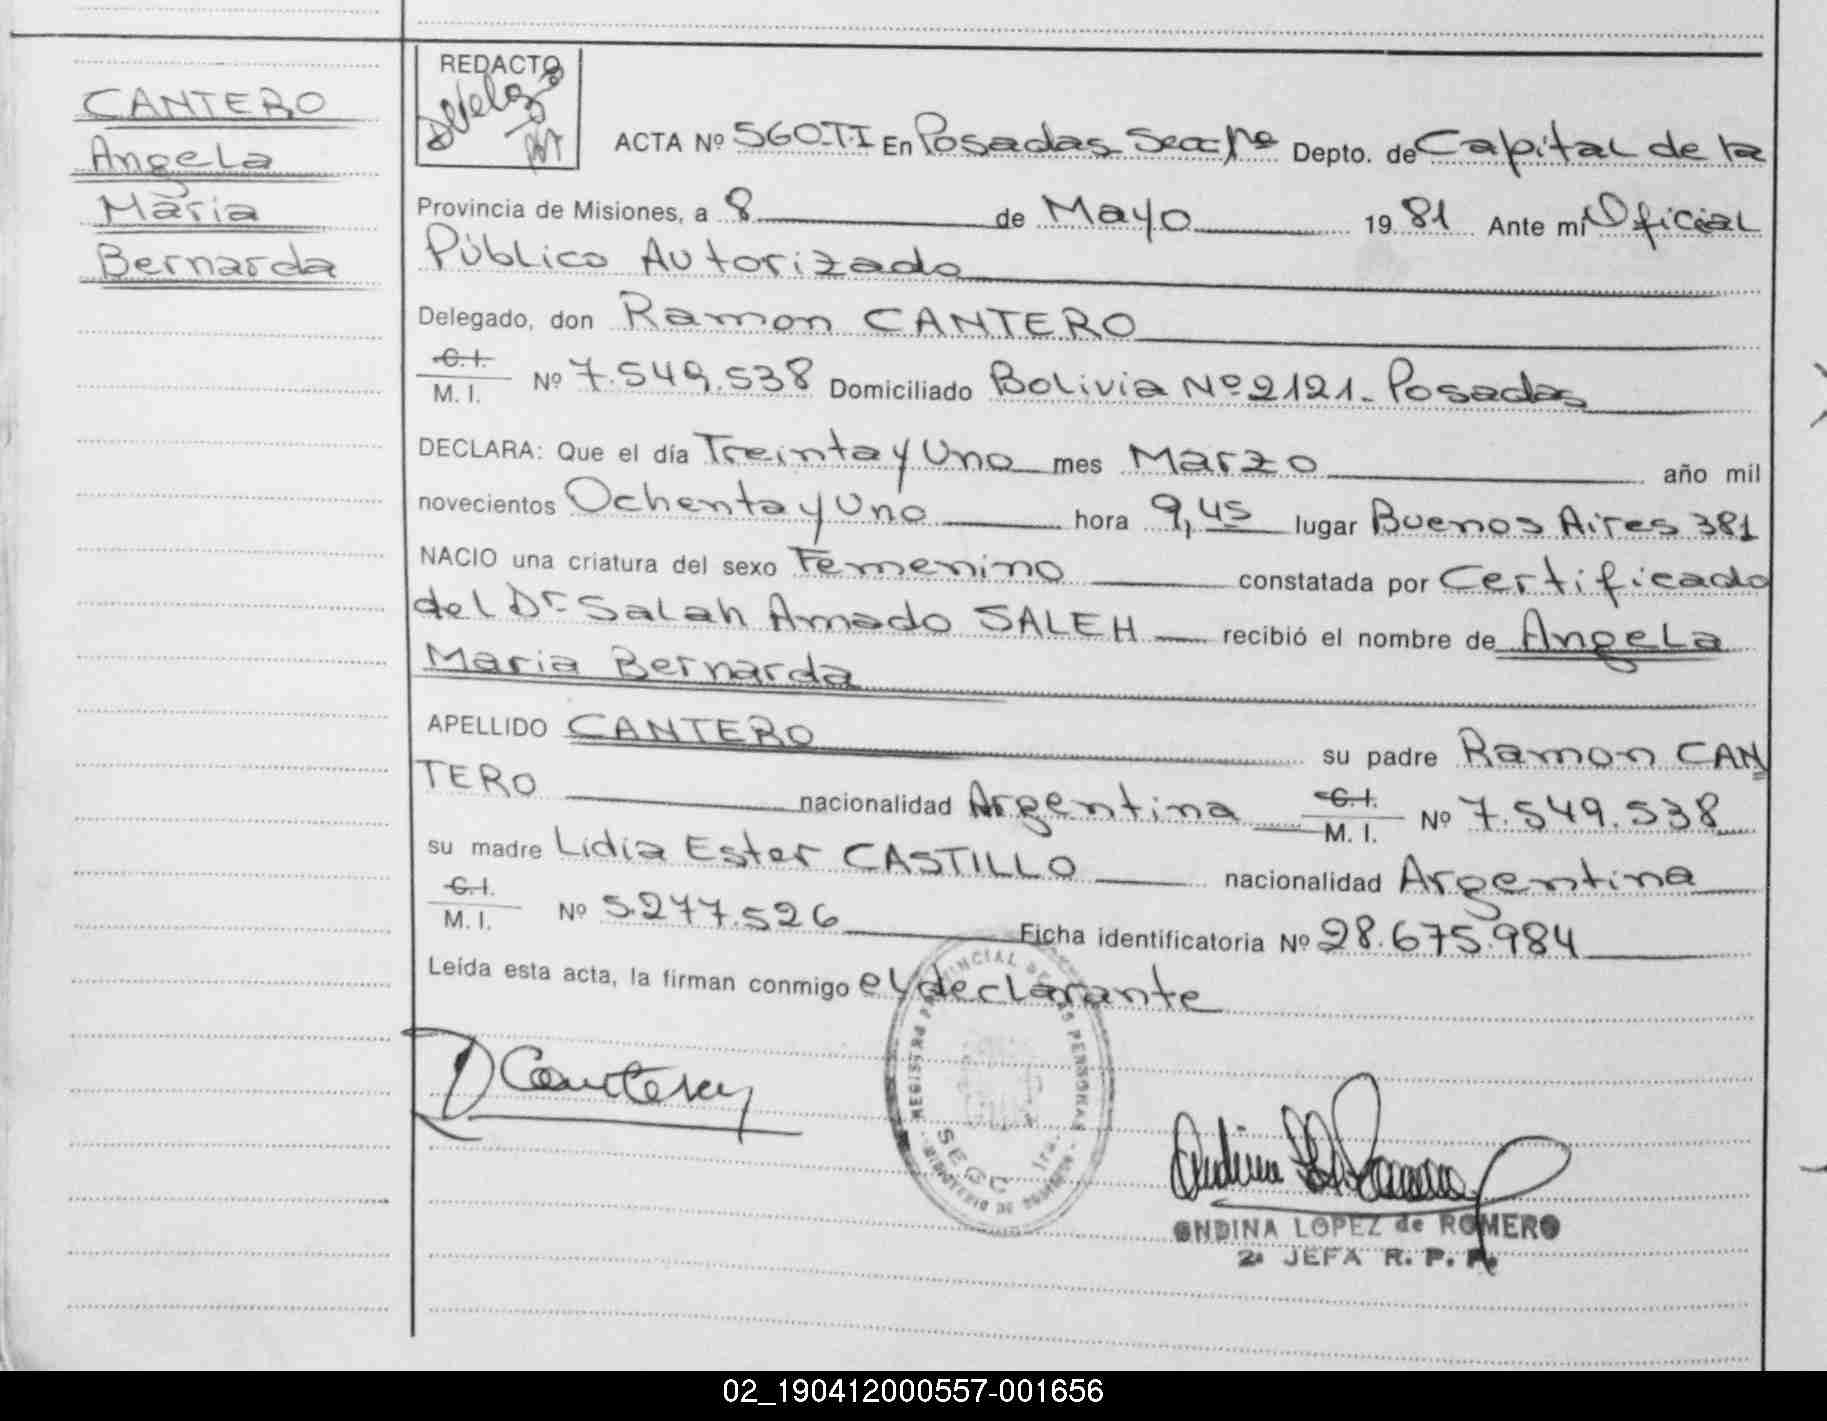 CANTERO
Angela
Maria
Bernarda
REDACTO
ACTA Nº 560-TI En Posadas Secc 1ª Depto. de Capital de la
Provincia de Misiones, a 8 de Mayo 1981 Ante mi Oficial
Público Autorizado
Delegado, don Ramon CANTERO
C.I.
M. I. Nº 7.549.538 Domiciliado Bolivia Nº 2121- Posadas
DECLARA: Que el día Treinta y Uno mes Marzo año mil
novecientos Ochenta y Uno hora 9,45 lugar Buenos Aires 381
NACIO una criatura del sexo Femenino constatada por Certificado
del Dr. Salah Amado SALEH recibió el nombre de Angela
Maria Bernarda
APELLIDO CANTERO su padre Ramon CAN
TERO nacionalidad Argentina C.I. M. I. Nº 7.549.538
su madre Lidia Ester CASTILLO nacionalidad Argentina
C.I.
M. I. Nº 5.277.526 Ficha identificatoria Nº 28.675.984
Leída esta acta, la firman conmigo el declarante
REGISTRO PROVINCIAL DE LAS PERSONAS
SECC 1ra.
ONDINA LOPEZ de ROMERO
2ª JEFA R. P. P.
02_190412000557-001656